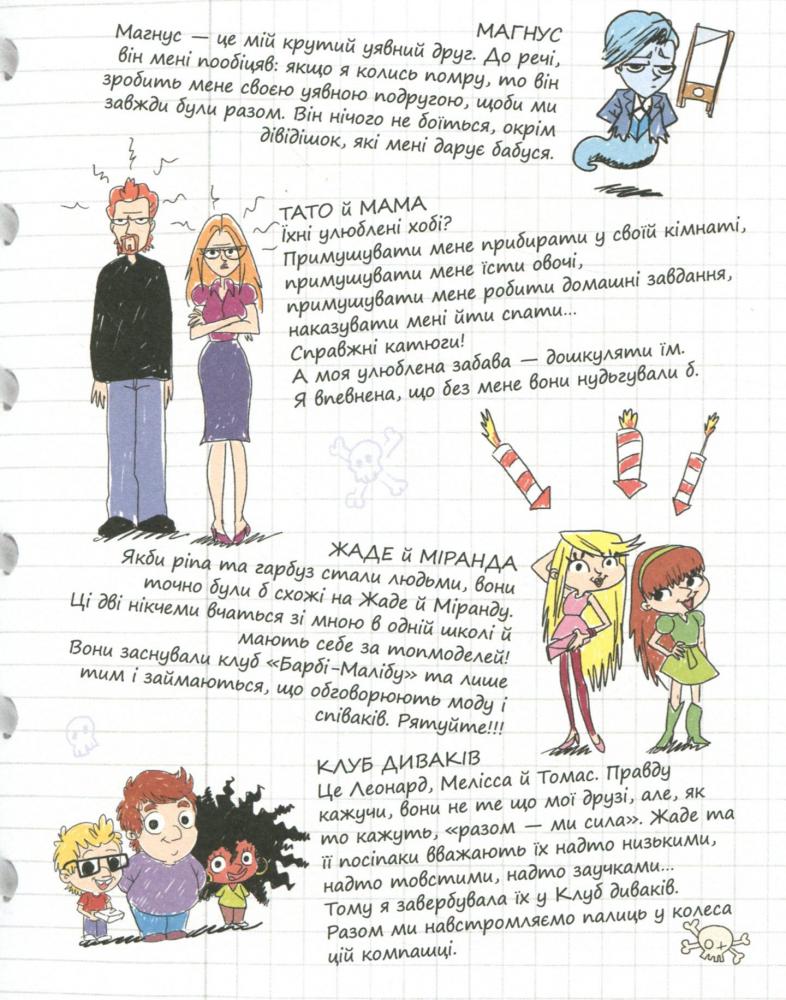 МАГНУС
Магнус — це мій крутий уявний друг. До речі,
він мені пообіцяв: якщо я колись помру, то він
зробить мене своєю уявною подругою, щоби ми
завжди були разом. Він нічого не боїться, окрім
дівідішок, які мені дарує бабуся.
ТАТО й МАМА
Їхні улюблені хобі?
Примушувати мене прибирати у своїй кімнаті,
примушувати мене їсти овочі,
примушувати мене робити домашні завдання,
наказувати мені йти спати...
Справжні катюги!
А моя улюблена забава — дошкуляти їм.
Я впевнена, що без мене вони нудьгували б.
ЖАДЕ й МІРАНДА
Якби ріпа та гарбуз стали людьми, вони
точно були б схожі на Жаде й Міранду.
Ці дві нікчеми вчаться зі мною в одній школі й
мають себе за топмоделей!
Вони заснували клуб «Барбі-Малібу» та лише
тим і займаються, що обговорюють моду і
співаків. Рятуйте!!!
КЛУБ ДИВАКІВ
Це Леонард, Мелісса й Томас. Правду
кажучи, вони не те що мої друзі, але, як
то кажуть, «разом — ми сила». Жаде та
її посіпаки вважають їх надто низькими,
надто товстими, надто заучками...
Тому я завербувала їх у Клуб диваків.
Разом ми навстромляємо палиць у колеса
цій компашці.